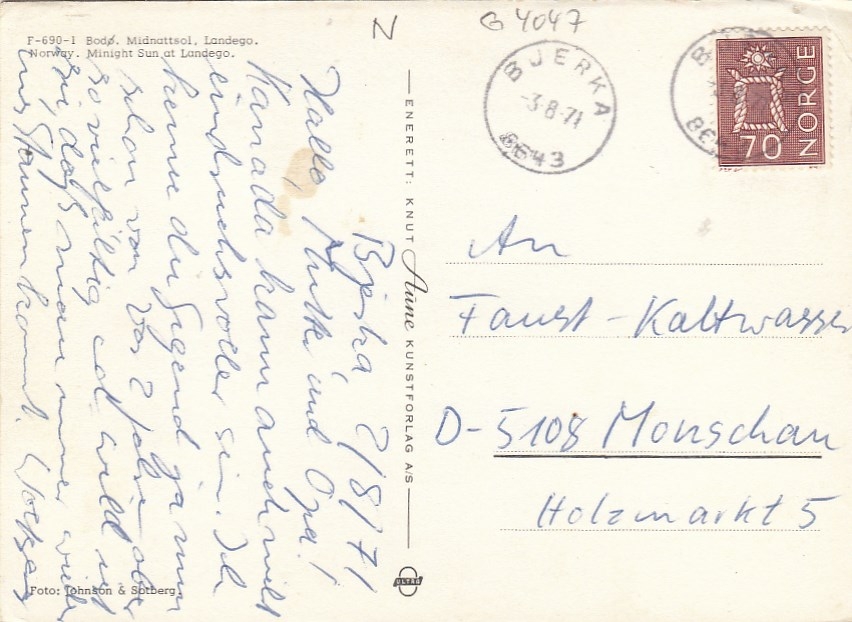 N
G 4047
F-690-1 Bodø. Midnattsol, Landego.
Norway. Minight Sun at Landego.
Bjerka 2/8/71
Hallo, Mutti und Opa!
Kanada kann auch nicht
eindrucksvoller sein. Ich
kenne die Gegend ja nun
schon von vor 2 Jahren aber
so vielfältig und wild ist
sie, daß man immer wieder
ins Staunen kommt. Wolfgang
Foto: Johnson & Sotberg.
ENERETT: KNUT Aune KUNSTFORLAG A/S
ULTRA
BJERKA
-3-8-71
8643
NORGE
70
An
Faust-Kaltwasser
D-5108 Monschau
Holzmarkt 5